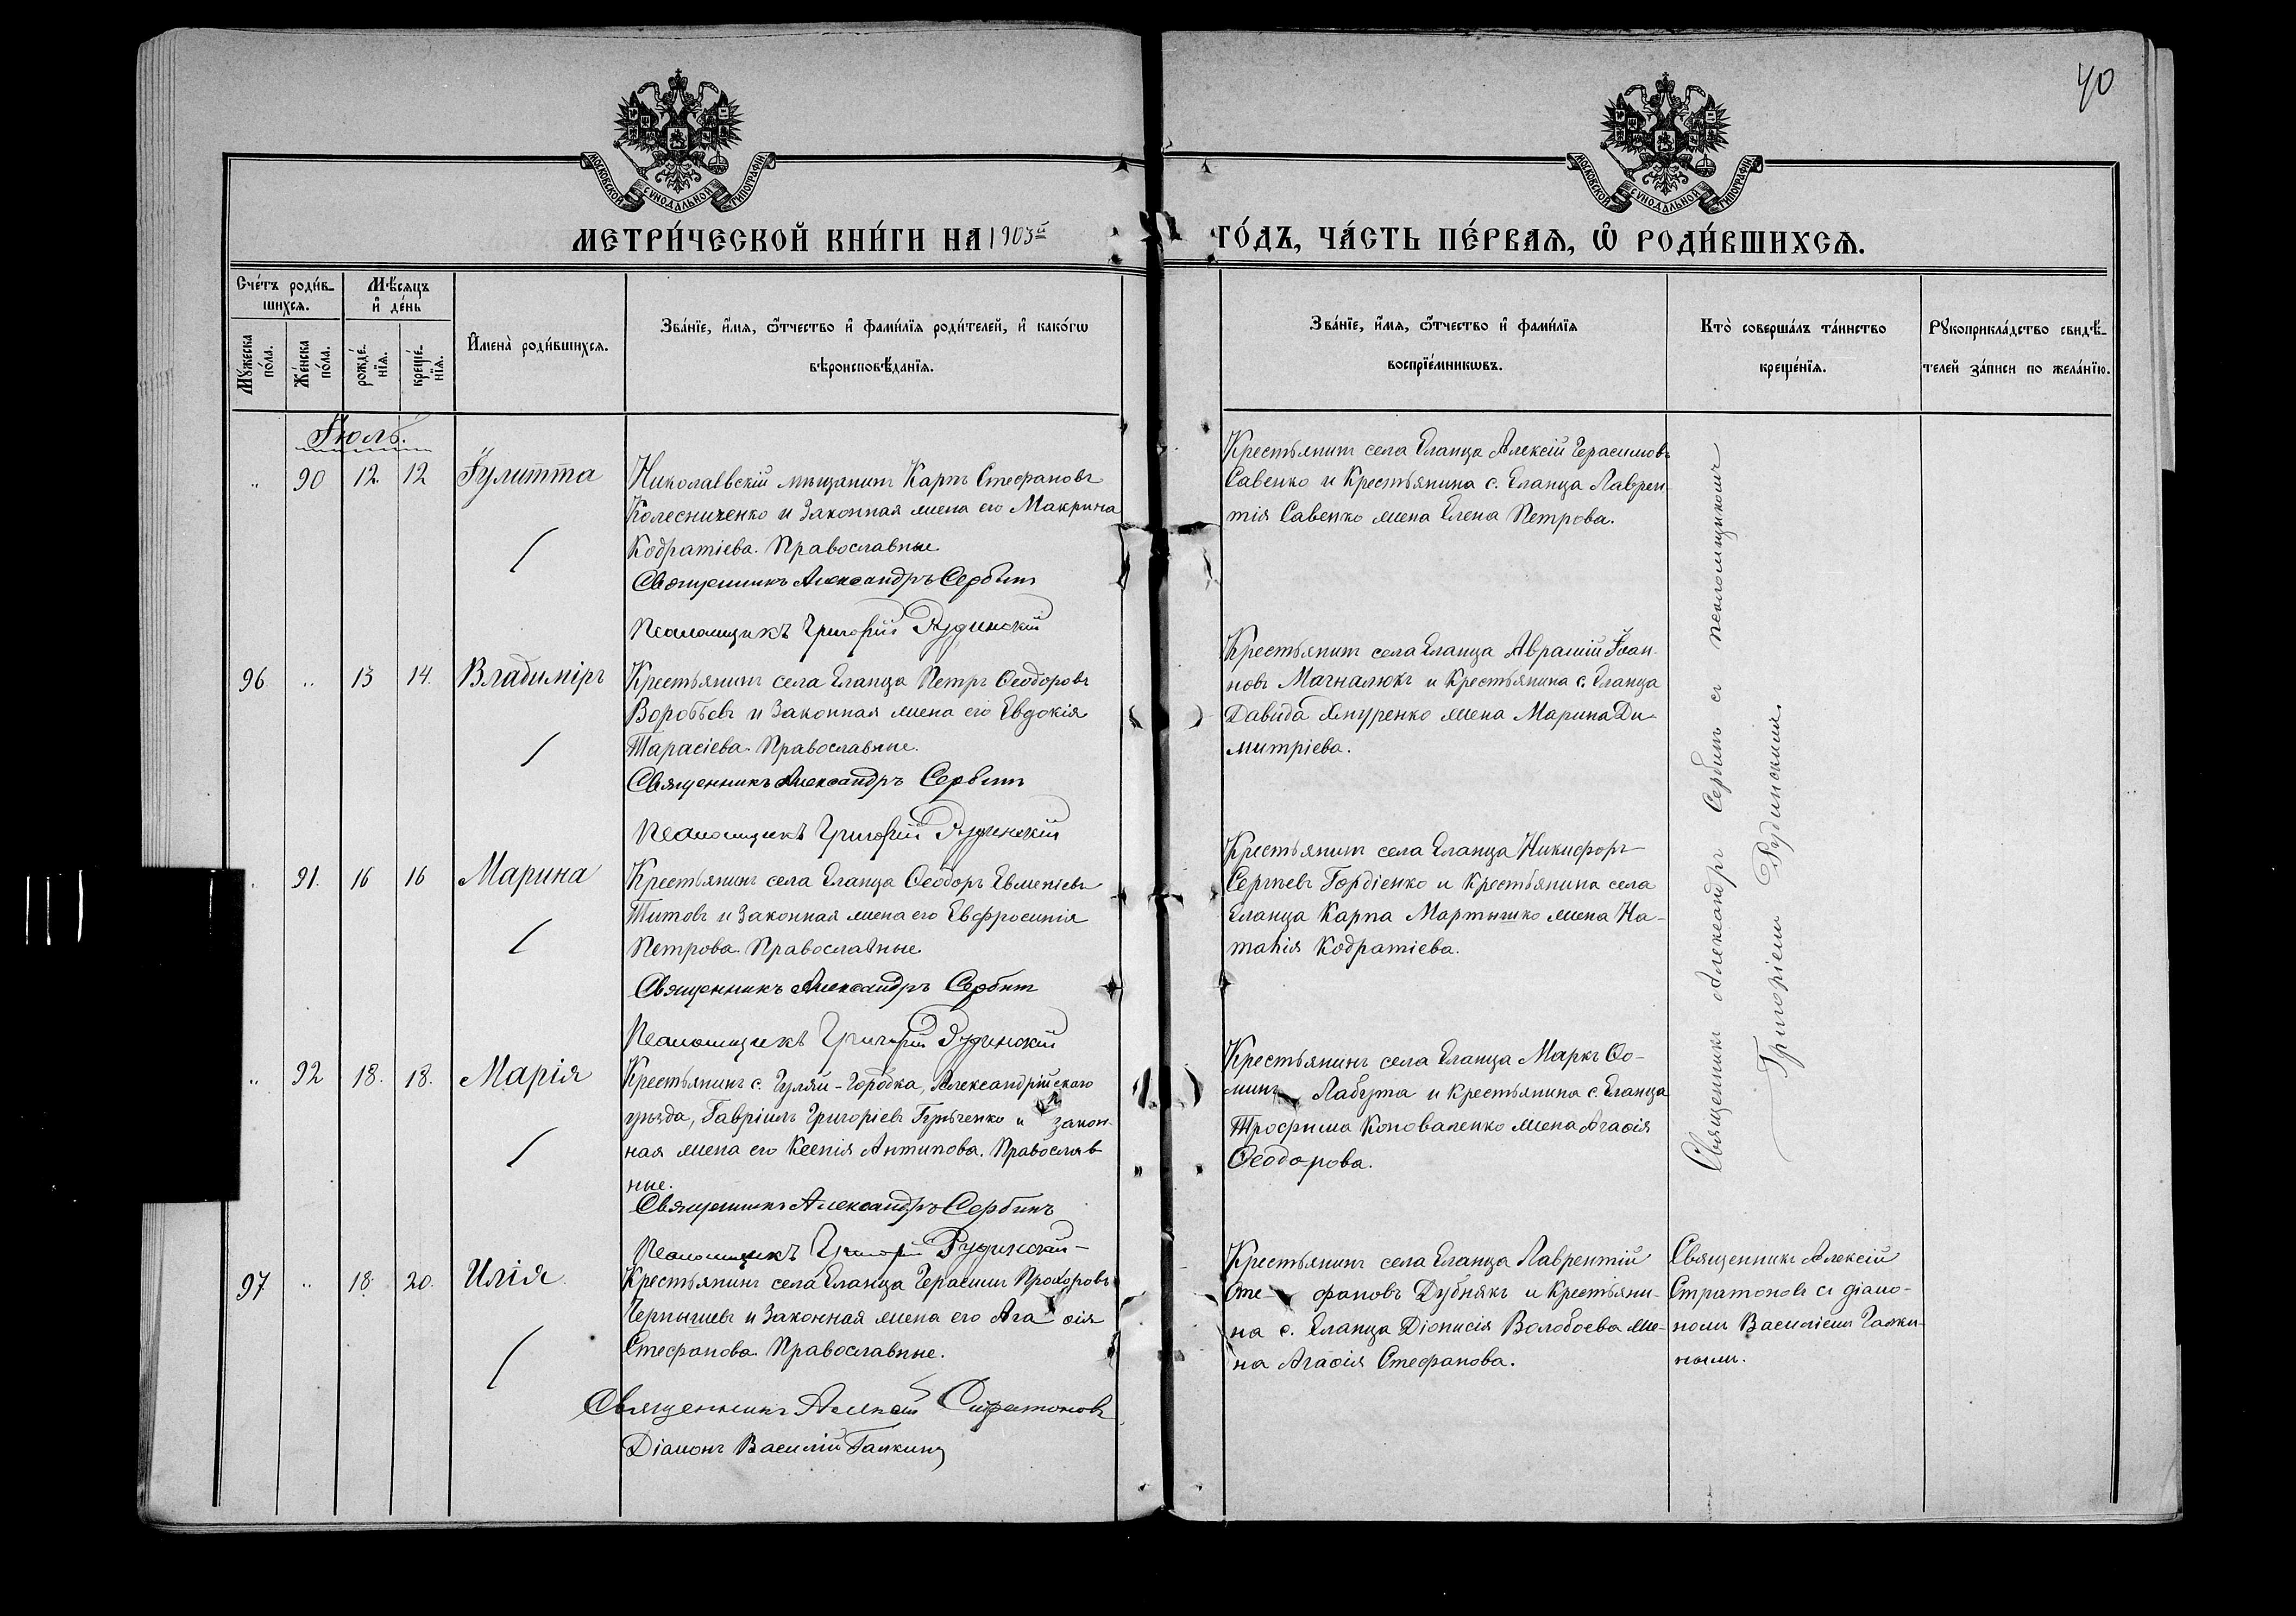 40
МОСКОВСКОЙ СѴНОДАЛЬНОЙ ТИПОГРАФІИ
МОСКОВСКОЙ СѴНОДАЛЬНОЙ ТИПОГРАФІИ
МЕТРИ́ЧЕСКОЙ КНИ́ГИ НА 1903й ГО́ДЪ, ЧА́СТЬ ПЕ́РВАѦ, Ѡ РОДИ́ВШИХСѦ.
Сче́тъ роди́в-
шихсѧ.
Мѣ́сѧцъ
и де́нь
Мꙋ́жеска
по́ла.
Же́нска
по́ла.
рожде́-
нїѧ.
креще́-
нїѧ.
Имена̀ роди́вшихсѧ.
Зва́нїе, и́мѧ, ѻ҆́тчество и фами́лїѧ роди́телей, и како́гѡ
вѣроисповѣ́данїѧ.
Зва́нїе, и́мѧ, ѻ҆́тчество и фами́лїѧ
воспрїе́мникѡвъ.
Кто̀ соверша́лъ та́инство
креще́нїѧ.
Рꙋкоприкла́дство свидѣ́-
телей за́писи по жела́нїю.
Іюль.
" 90 12. 12 Іулитта
Николаевскій мѣщанинъ Карпъ Стефановъ
Колесниченко и Законная жена его Макрина
Кодратіева. Православные.
Священникъ Александръ Сербинъ
Псаломщикъ Григорій Рудинскій
Крестьянинъ села Еланца Алексій Герасимовъ
Савенко и Крестьянина с. Еланца Лаврен
тія Савенко жена Елена Петрова.
96 " 13 14. Владиміръ
Крестьянинъ села Еланца Петръ Ѳеодоровъ
Воробьевъ и Законная жена его Евдокія
Тарасіева. Православные.
Священникъ Александръ Сербинъ
Псаломщикъ Григорій Рудинскій
Крестьянинъ села Еланца Аврамій Іоан
новъ Магналюкъ и Крестьянина с. Еланца
Давида жена Марина Ди-
митріева.
" 91. 16 16 Марина
Крестьянинъ села Еланца Ѳеодоръ Евменіевъ
Титовъ и Законная жена его Евфросинія
Петрова. Православные
Священникъ Александръ Сербинъ
Псаломщикъ Григорій Рудинскій
Крестьянинъ села Еланца Никифоръ
Сергѣевъ Гордіенко и Крестьянина села
Еланца Карпа Мартышко жена На-
талія Кодратіева.
" 92 18. 18. Марія
Крестьянинъ с. Гуляй-Городка, Александрійскаго
уѣзда, Гавріилъ Григоріевъ и закон-
ная жена его Ксенія Антипова. Православ-
ные.
Священникъ Александръ Сербинъ
Псаломщикъ Григорій Рудинскій
Крестьянинъ села Еланца Маркъ Ѳо-
минъ Лабута и крестьянина с. Еланца
Трофима Коноваленко жена Агаѳія
Ѳеодорова.
Священникъ Александръ Сербинъ съ псаломщикомъ
Григоріемъ Рудинскимъ.
97. " 18. 20. Илія.
Крестьянинъ села Еланца Герасимъ Прохоровъ
Чернышевъ и Законная жена его Ага ѳія
Стефанова. Православные.
Священникъ Алексій Стратоновъ
Діаконъ Василій Галкинъ
Крестьянинъ села Еланца Лаврентій
Сте- фановъ Дубнякъ и Крестьяни-
на с. Еланца Діонисія Волобоева же-
на Агаѳія Стефанова.
Священникъ Алексій
Стратоновъ съ діако-
номъ Василіемъ Галки-
нымъ.